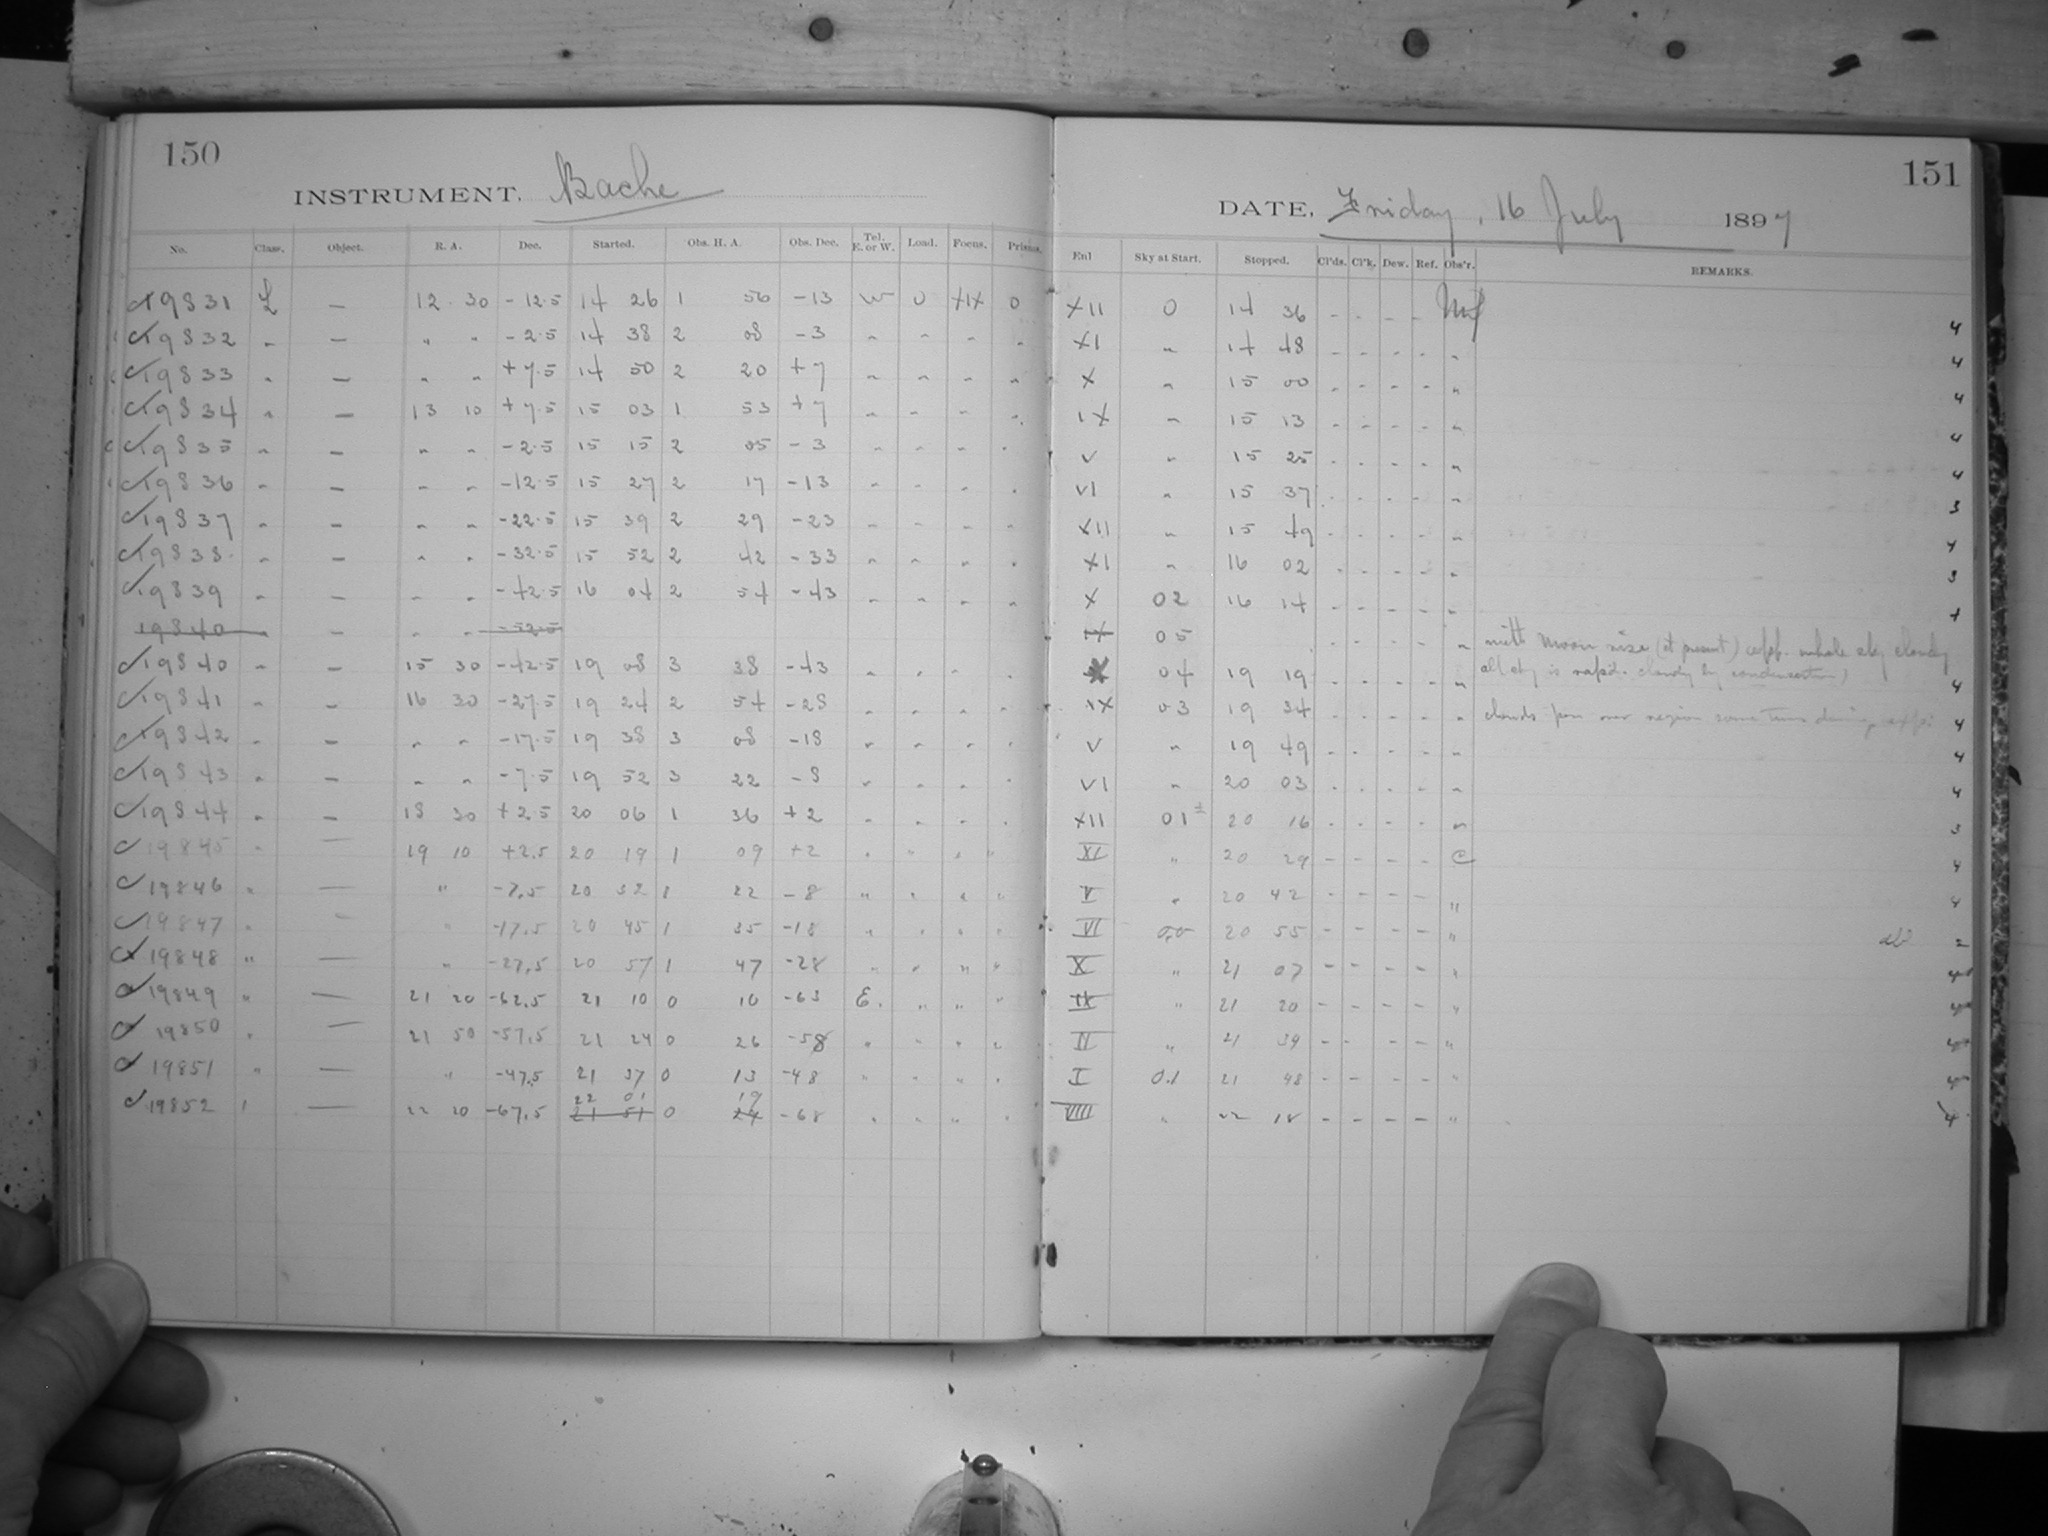 150
INSTRUMENT. Bache
No. Class. Object. R. A. Dec. Started. Obs. H. A. Obs. Dec. Tel. E. or W. Load. Focus. Prisms.
19831 L — 12 30 -12.5 14 26 1 56 -13 W 0 XIX 0
19832 " — " " -2.5 14 38 2 08 -3 " " " "
19833 " — " " +7.5 14 50 2 20 +7 " " " "
19834 " — 13 10 +7.5 15 03 1 53 +7 " " " "
19835 " — " " -2.5 15 15 2 05 -3 " " " "
19836 " — " " -12.5 15 27 2 17 -13 " " " "
19837 " — " " -22.5 15 39 2 29 -23 " " " "
19838 " — " " -32.5 15 52 2 42 -33 " " " "
19839 " — " " -42.5 16 04 2 54 -43 " " " "
19840 " — " " -52.5
19840 " — 15 30 -42.5 19 08 3 38 -43 " " " "
19841 " — 16 30 -27.5 19 24 2 54 -28 " " " "
19842 " — " " -17.5 19 38 3 08 -18 " " " "
19843 " — " " -7.5 19 52 3 22 -8 " " " "
19844 " — 18 30 +2.5 20 06 1 36 +2 " " " "
19845 " — 19 10 +2.5 20 19 1 09 +2 " " " "
19846 " — " -7.5 20 32 1 22 -8 " " " "
19847 " — " -17.5 20 45 1 35 -18 " " " "
19848 " — " -27.5 20 57 1 47 -28 " " " "
19849 " — 21 20 -62.5 21 10 0 10 -63 E. " " "
19850 " — 21 50 -57.5 21 24 0 26 -58 " " " "
19851 " — " -47.5 21 37 0 13 -48 " " " "
22 01 19
19852 " — 22 20 -67.5 21 51 0 24 -68 " " " "
151
DATE, Friday, 16 July 1897
Enl Sky at Start. Stopped. Cl'ds. Cl'k. Dew. Ref. Obs'r. REMARKS.
XII 0 14 36 - - - -
XI " 14 48 - - - - " 4
X " 15 00 - - - - " 4
IX " 15 13 - - - - " 4
V " 15 25 - - - - " 4
VI " 15 37 - - - - " 4
XII " 15 49 - - - - " 3
XI " 16 02 - - - - " 4
X 02 16 14 - - - - " 3
IX 05 - - - - " with Moon rise (at present) whole sky cloudy
X 04 19 19 - - - - " all sky is cloudy by condensation) 4
IX 03 19 34 - - - - " clouds over region some times during 4
V " 19 49 - - - - " 4
VI " 20 03 - - - - " 4
XII 01± 20 16 - - - - " 3
XI " 20 29 - - - - C 4
V " 20 42 - - - - " 4
VI 0.0 20 55 - - - - " 2
X " 21 07 - - - - " 4
IX " 21 20 - - - - " 4
II " 21 39 - - - - " 4
I 0.1 21 48 - - - - " 4
VIII " 22 18 - - - - " 4